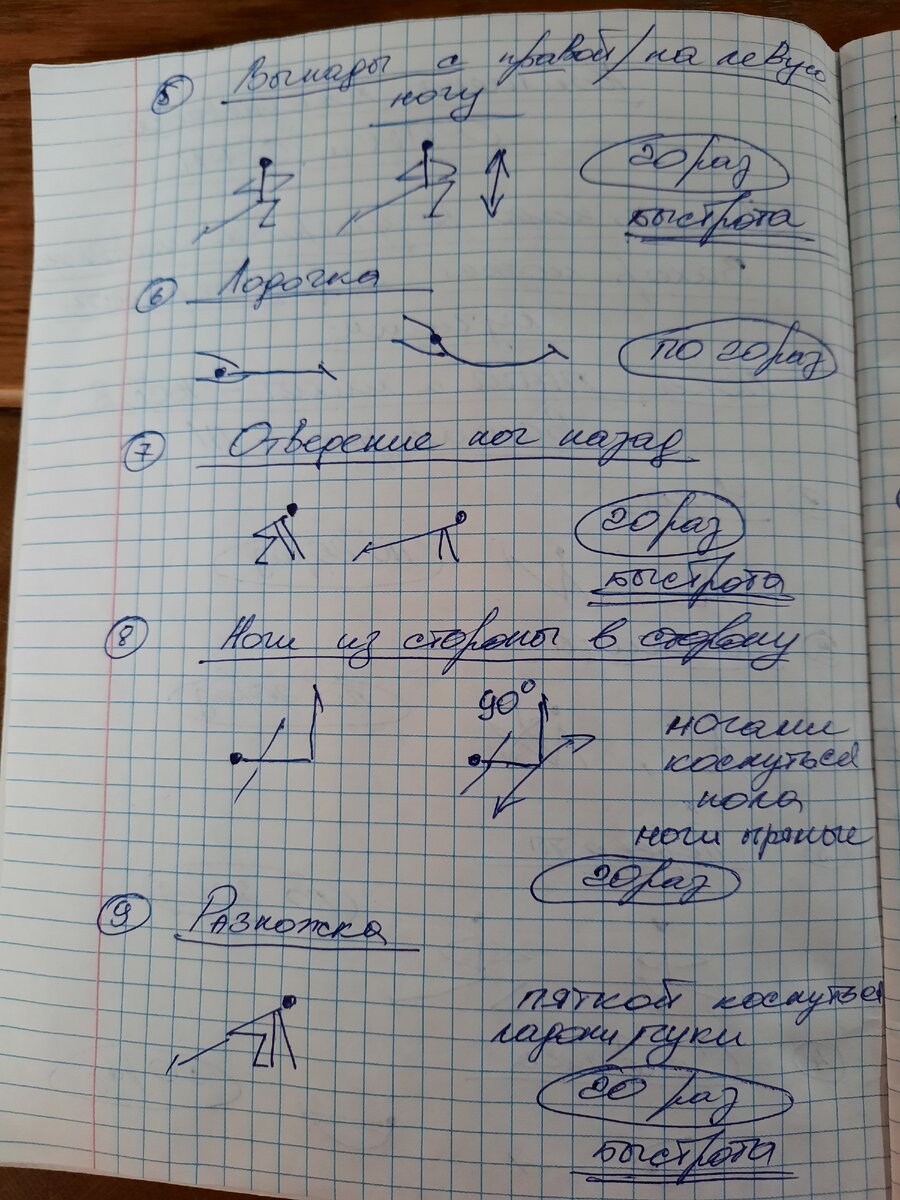 5 Выпады с правой/на левую
ногу
20 раз
быстрота
6 Лодочка
по 20 раз
7 Отведение ног назад
20 раз
быстрота
8 Ноги из стороны в сторону
90°
ногами
коснуться
пола
ноги прямые
20 раз
9 Разножка
пяткой коснуться
ладони/руки
20 раз
быстрота